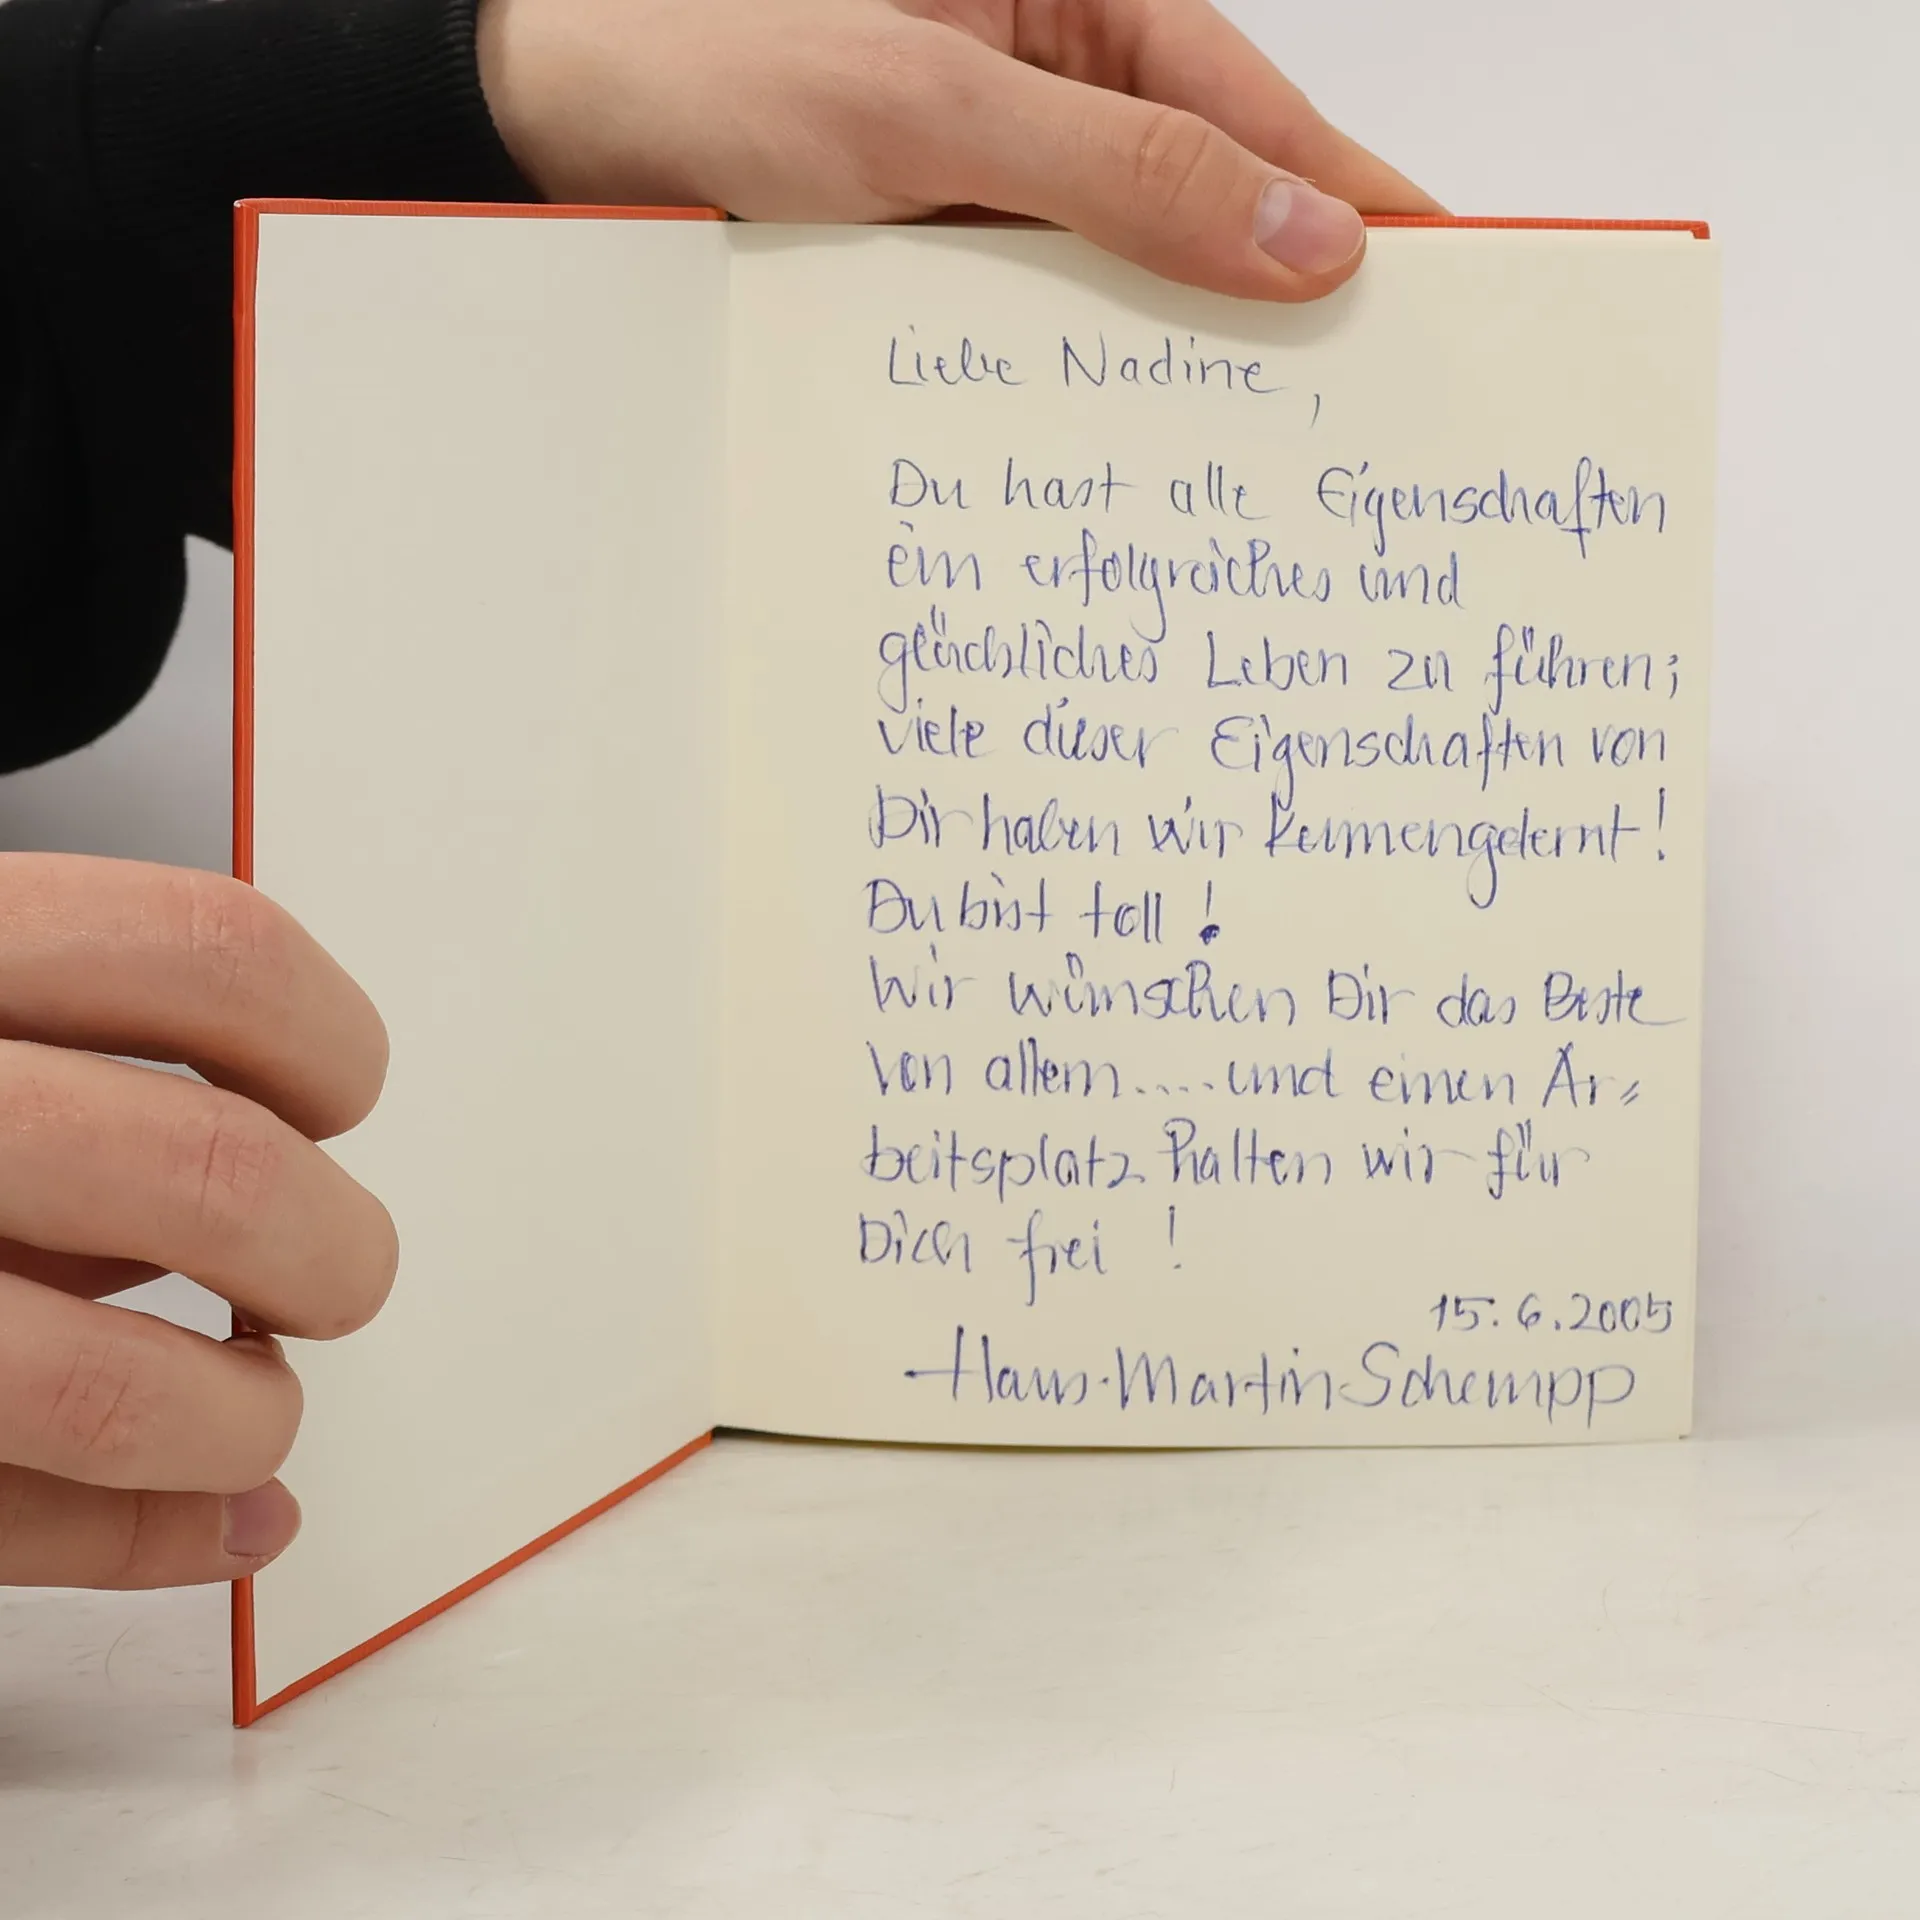 Liebe Nadine,
Du hast alle Eigenschaften
ein erfolgreiches und
glückliches Leben zu führen;
viele dieser Eigenschaften von
Dir haben wir kennengelernt!
Du bist toll!
Wir wünschen Dir das Beste
von allem.... und einen Ar=
beitsplatz halten wir für
Dich frei!
15.6.2005
Hans-Martin Schempp